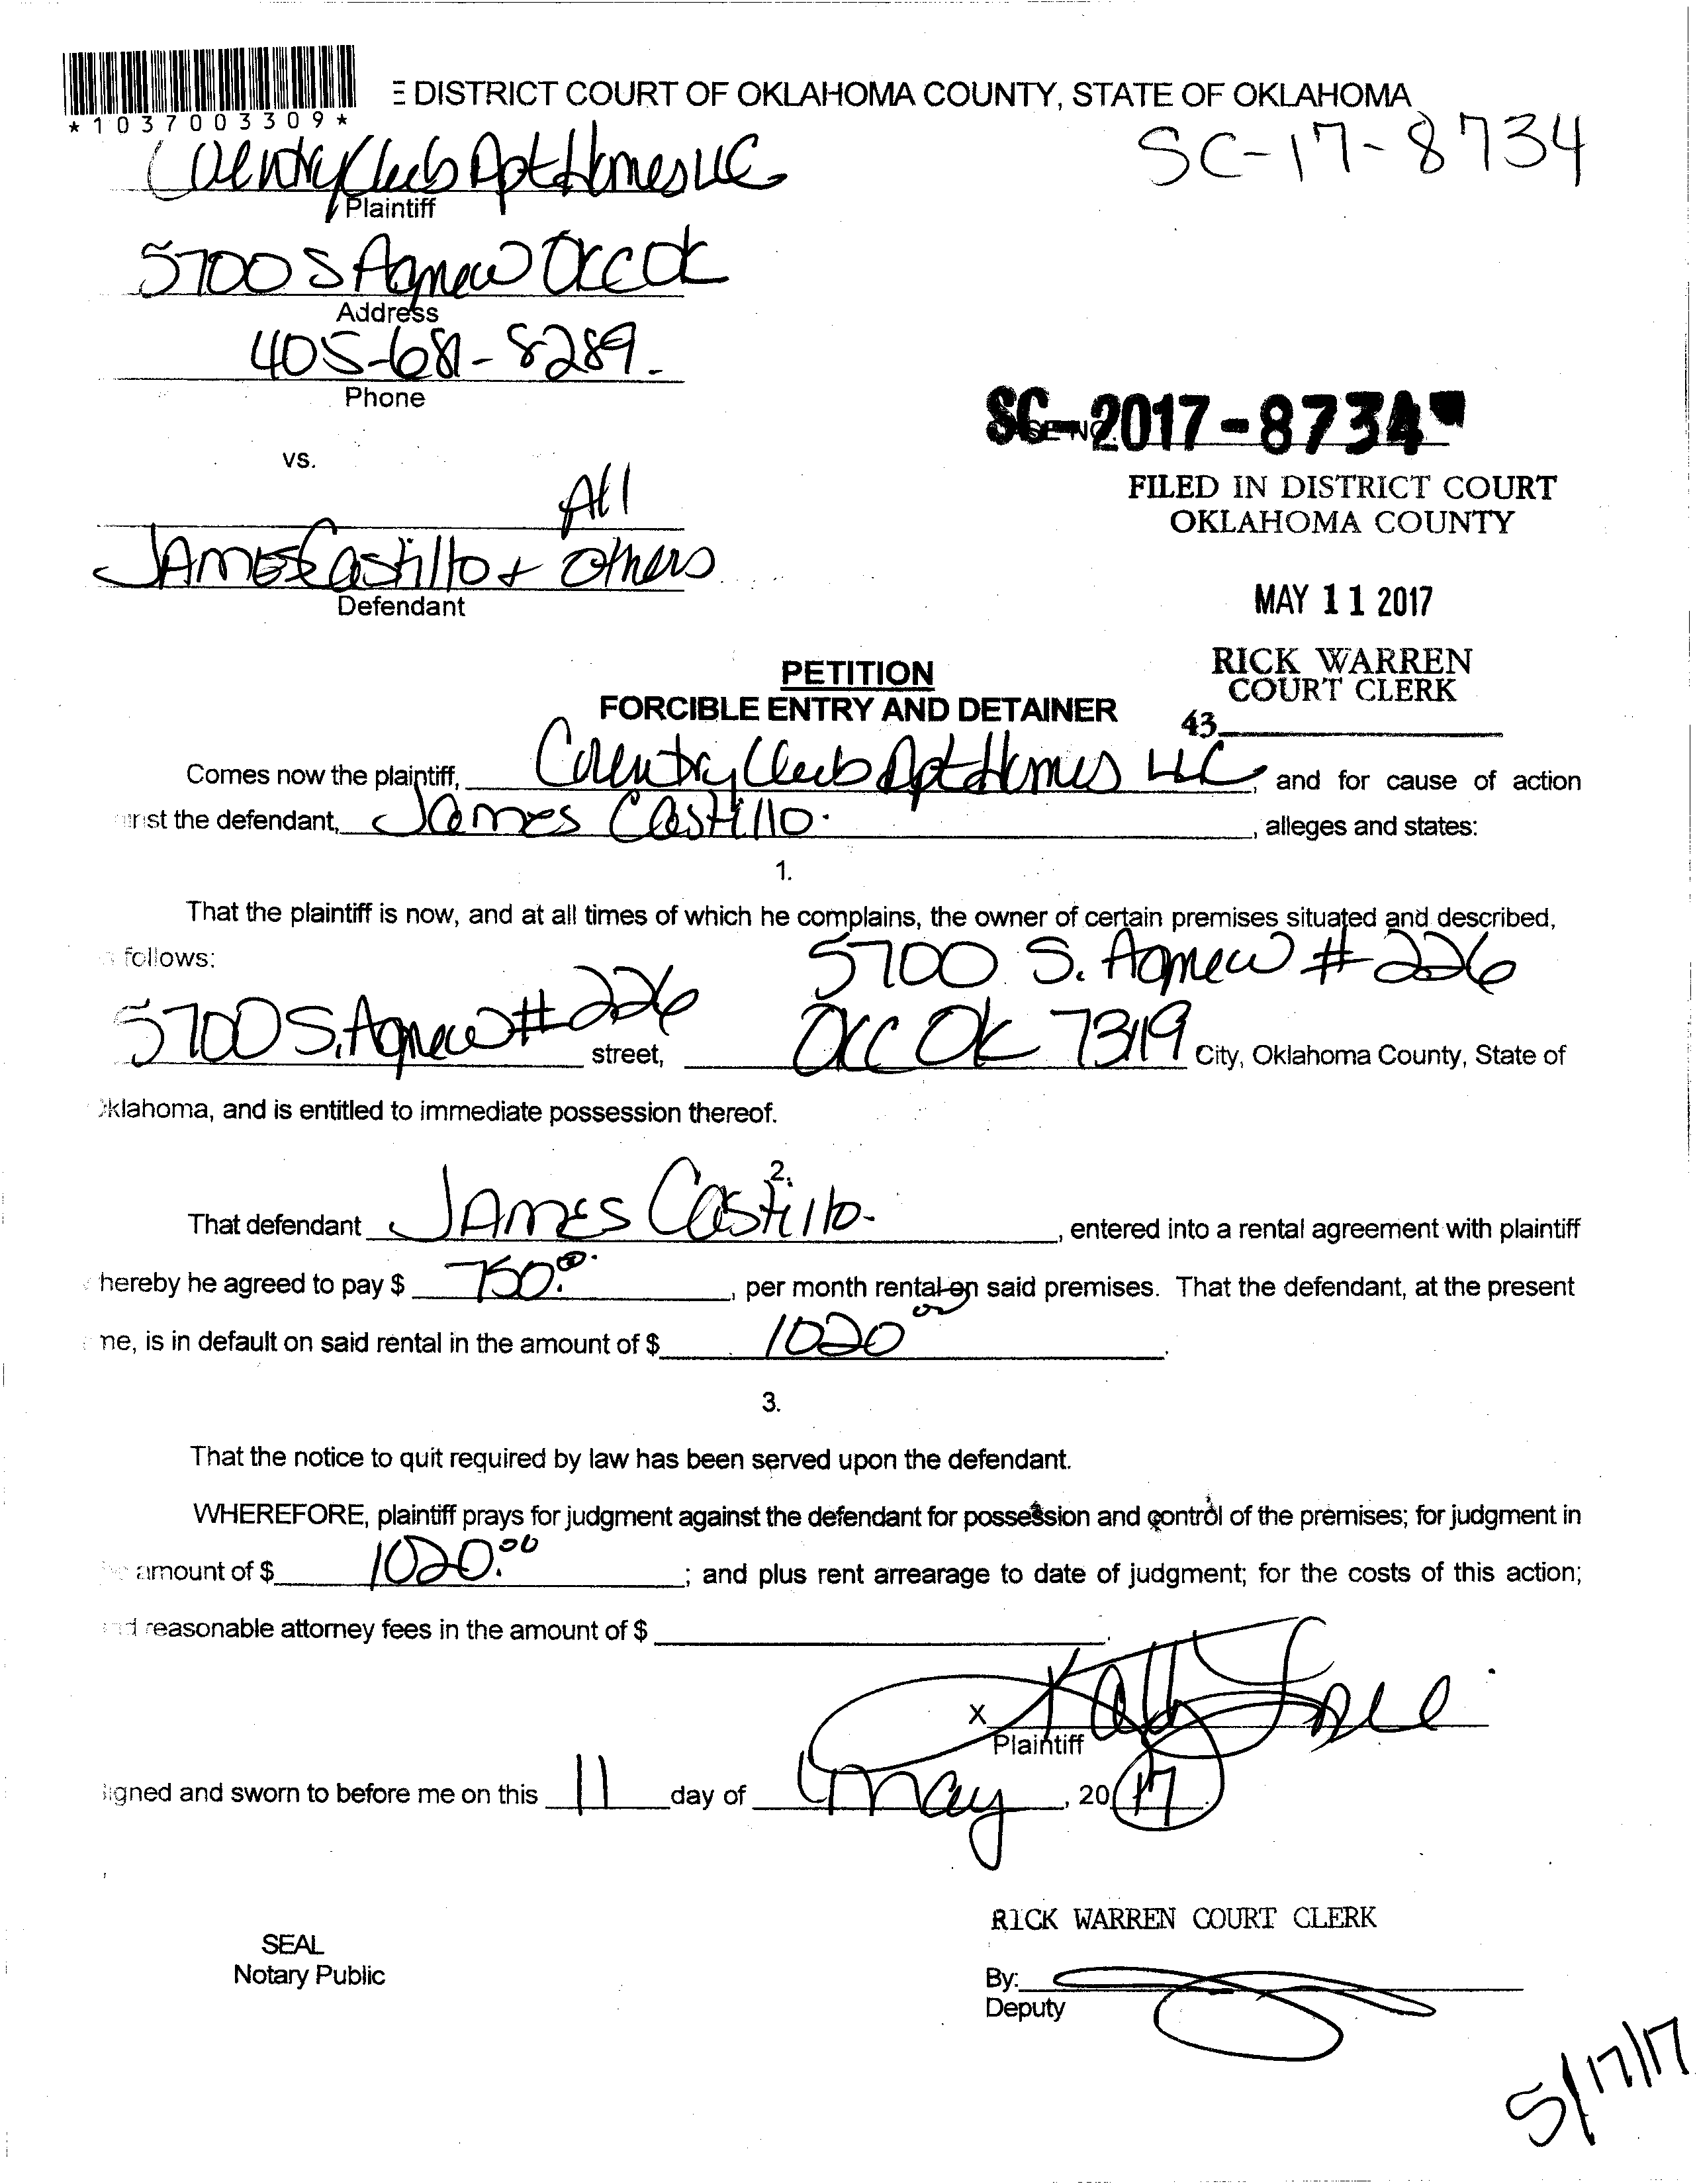 E DISTRICT COURT OF OKLAHOMA COUNTY, STATE OF OKLAHOMA
*1037003309*
SC-17-8734
Country Club Apt Homes LLC
Plaintiff
5700 S Agnew OKC OK
Address
405-681-8289
Phone
SC-2017-8734
vs.
FILED IN DISTRICT COURT
OKLAHOMA COUNTY
All
James Castillo + others
Defendant
MAY 11 2017
RICK WARREN
COURT CLERK
43
PETITION
FORCIBLE ENTRY AND DETAINER
Comes now the plaintiff, Country Club Apt Homes LLC, and for cause of action
inst the defendant, James Castillo, alleges and states:
1.
That the plaintiff is now, and at all times of which he complains, the owner of certain premises situated and described,
follows: 5700 S. Agnew # 226
5700 S. Agnew # 226 street, OKC OK 73119 City, Oklahoma County, State of
klahoma, and is entitled to immediate possession thereof.
2.
That defendant James Castillo, entered into a rental agreement with plaintiff
hereby he agreed to pay $ 750.00, per month rental on said premises. That the defendant, at the present
me, is in default on said rental in the amount of $ 1020 00.
3.
That the notice to quit required by law has been served upon the defendant.
WHEREFORE, plaintiff prays for judgment against the defendant for possession and control of the premises; for judgment in
amount of $ 1020.00; and plus rent arrearage to date of judgment; for the costs of this action;
d reasonable attorney fees in the amount of $
X
Plaintiff
igned and sworn to before me on this 11 day of May, 2017.
RICK WARREN COURT CLERK
SEAL
Notary Public
By:
Deputy
5/17/17